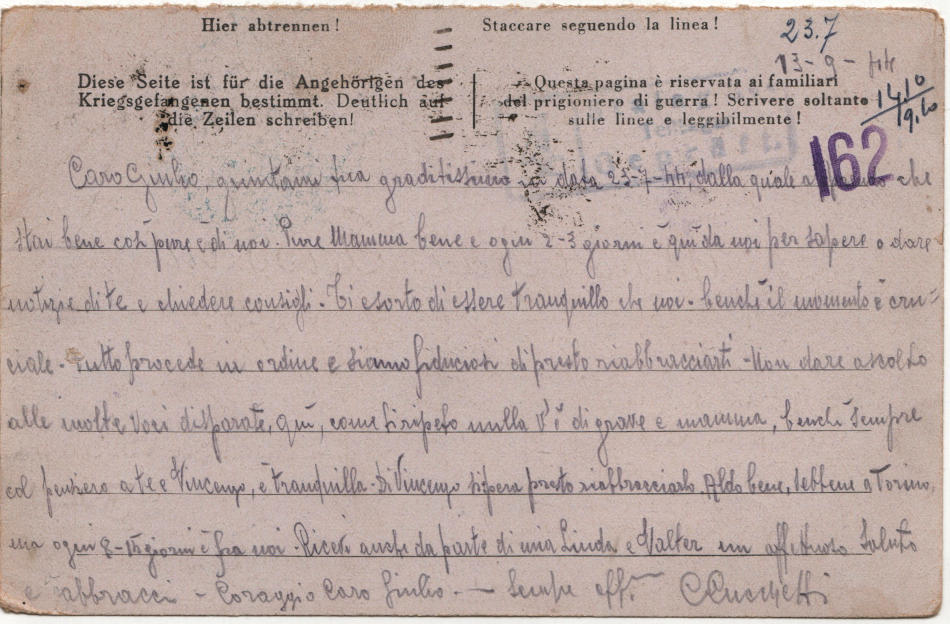 Hier abtrennen!
Staccare seguendo la linea!
23.7
13-9-44
Diese Seite ist für die Angehörigen des
Kriegsgefangenen bestimmt. Deutlich auf
die Zeilen schreiben!
Questa pagina è riservata ai familiari
del prigioniero di guerra! Scrivere soltanto
sulle linee e leggibilmente!
162
Caro Giulio, tua graditissima in data 23-7-44, dalla quale che
stai bene così pure è di noi. Pure Mamma bene e ogni 2-3 giorni è qui da noi per sapere o dare
notizie di te e chiedere consigli - Ti esorto di essere tranquillo che noi - benchè il momento è cru=
ciale - tutto procede in ordine e siamo fiduciosi di presto riabbracciarti - Non dare ascolto
alle molte voci disparate, qui, come ti ripeto nulla v'è di grave e mamma, benchè sempre
col pensiero a te e Vincenzo, è tranquilla - di Vincenzo si spera presto riabbracciarlo. Aldo bene, sebbene a Torino,
ma ogni 8-15 giorni è fra noi. Ricevi anche da parte di Linda e Valter un affettuoso saluto
e abbracci - Coraggio Caro Giulio. — Sempre aff.